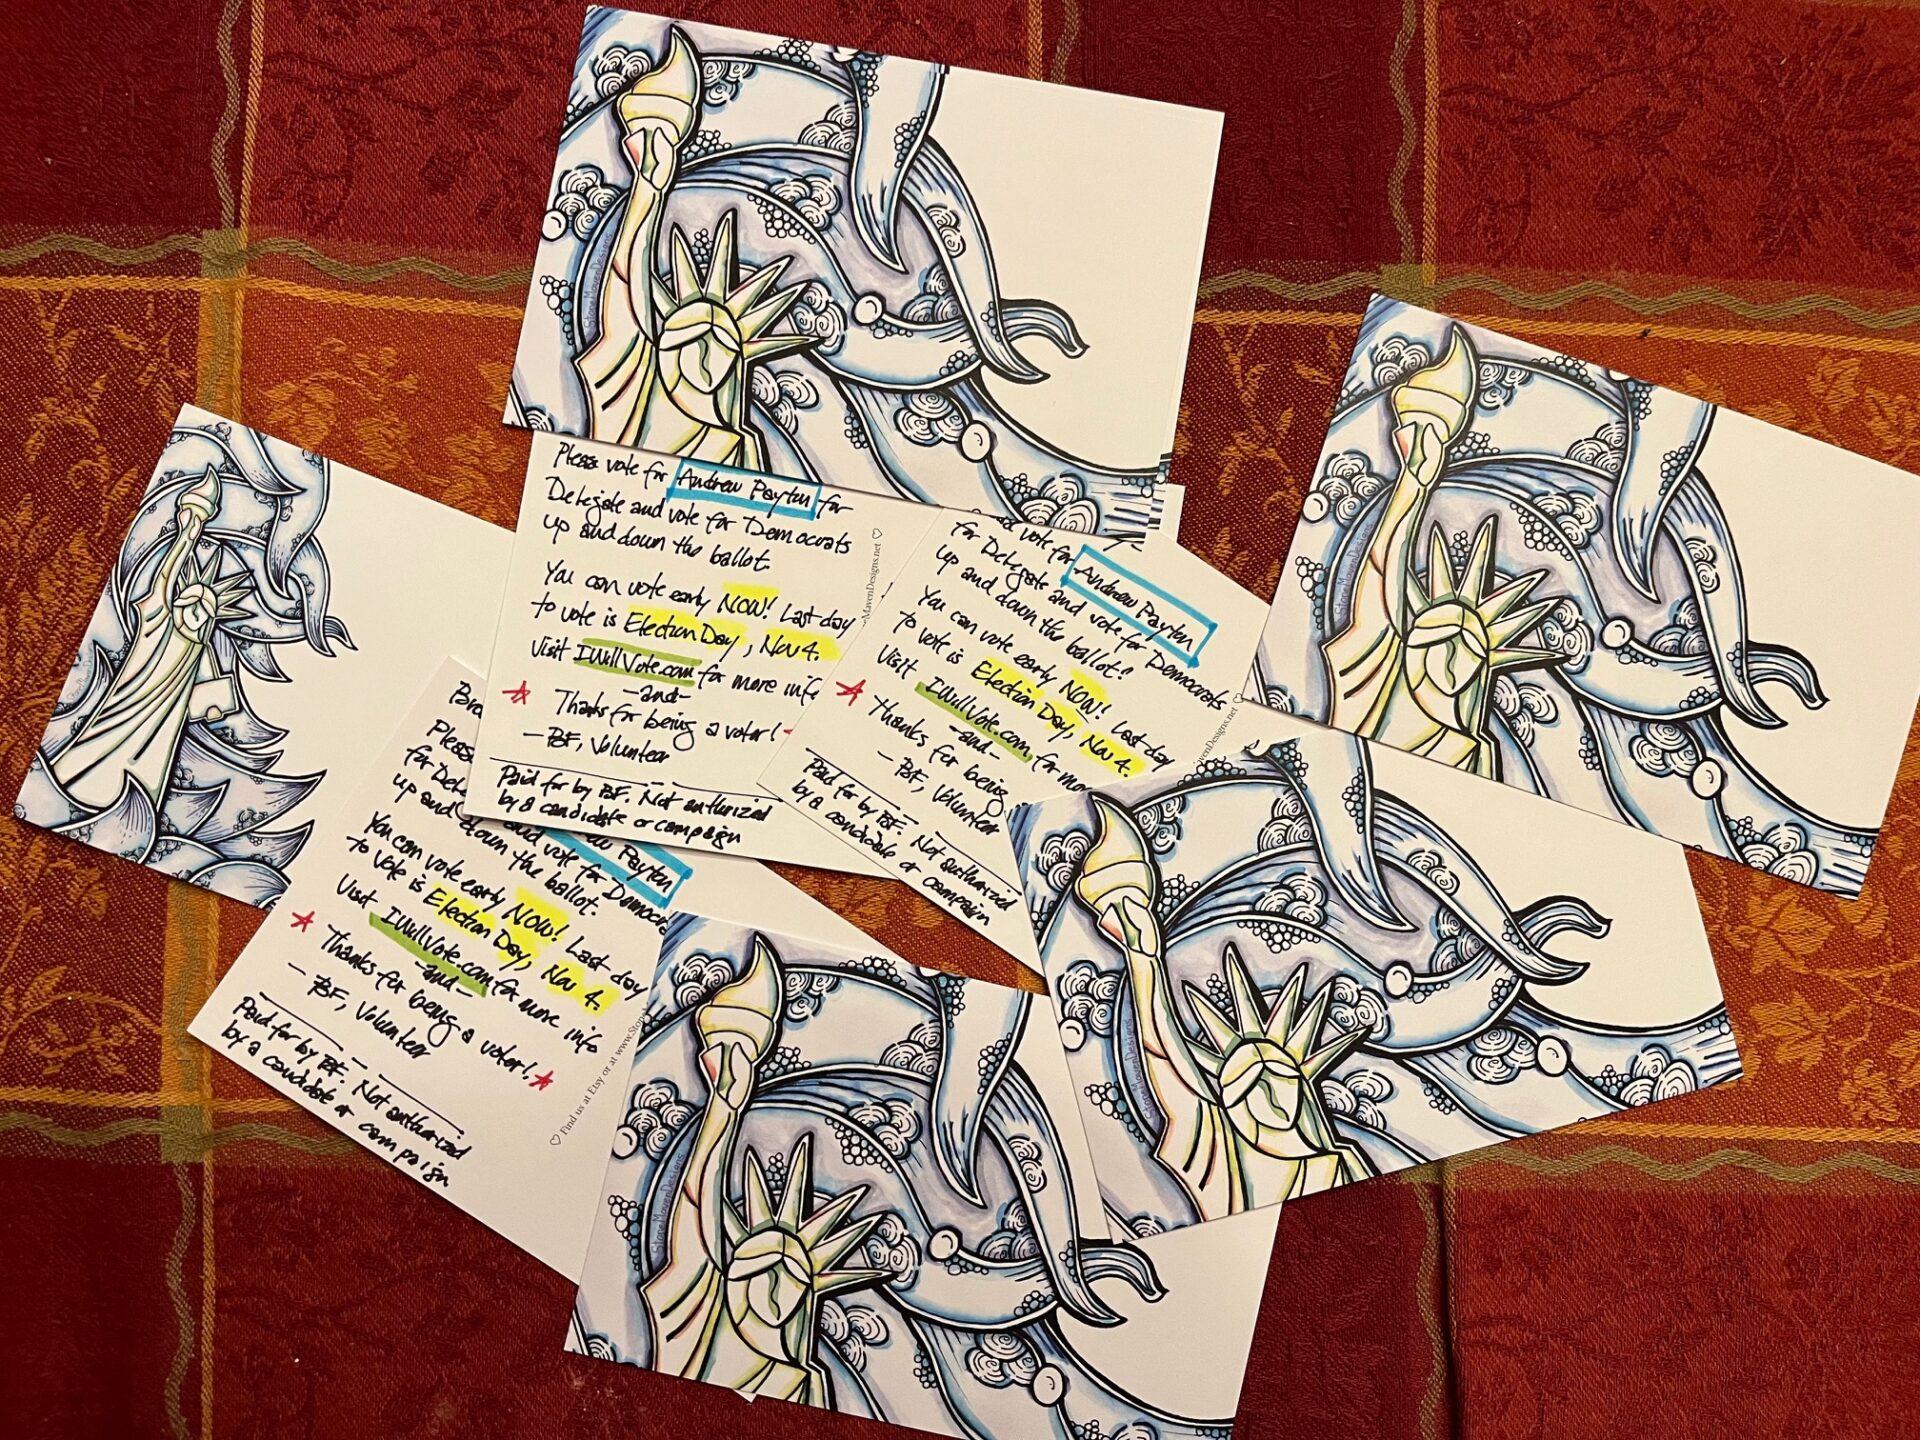 StoneMavenDesigns
Please vote for Andrew Payton for
Delegate and vote for Democrats
up and down the ballot.
You can vote early NOW! Last day
to vote is Election Day, Nov 4.
Visit IWillVote.com for more
-and-
Thanks for being a voter!
-BF, Volunteer
Paid for by BF. Not authorized
by a candidate or campaign
MavenDesigns.net ♡
vote for Andrew Payton
for Delegate and vote for Democrats
up and down the ballot.
You can vote early NOW! Last day
to vote is Election Day, Nov 4.
Visit IWillVote.com, for
-and-
Thanks for being
-BF, Volunteer
Paid for by BF. Not authorized
by a candidate or campaign
MavenDesigns.net ♡
StoneMavenDesigns
Please
for
up and down the ballot.
and vote for
Payton
You can vote early NOW! Last day
to vote is Election Day, Nov 4.
Visit IWillVote.com for more info
-and-
Thanks for being a voter!
-BF, Volunteer
Paid for by BF. Not authorized
by a candidate or campaign
♡ Find us at Etsy or at
StoneMavenDesigns
StoneMavenDesigns